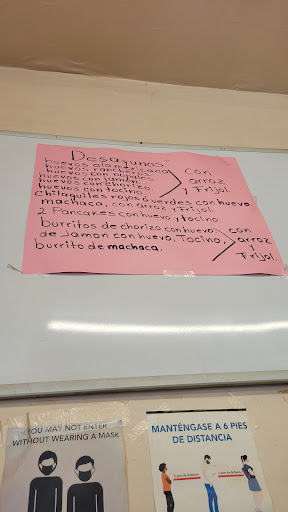 Desayunos:
huevos ala mexicana
huevos rancheros
huevos con nopales
huevos con jamón
huevos con chorizo
huevos con tocino.
con
arroz
y Frijol.
Chilaquiles rojos ó verdes con huevo
machaca, con arroz y Frijol.
2 Pancakes con huevo y tocino.
burritos de chorizo con huevo
de Jamon con huevo, Tocino,
burrito de machaca.
con
arroz
y
Frijol.
YOU MAY NOT ENTER
WITHOUT WEARING A MASK
MANTÉNGASE A 6 PIES
DE DISTANCIA
6 pies de distancia
6 pies de distancia